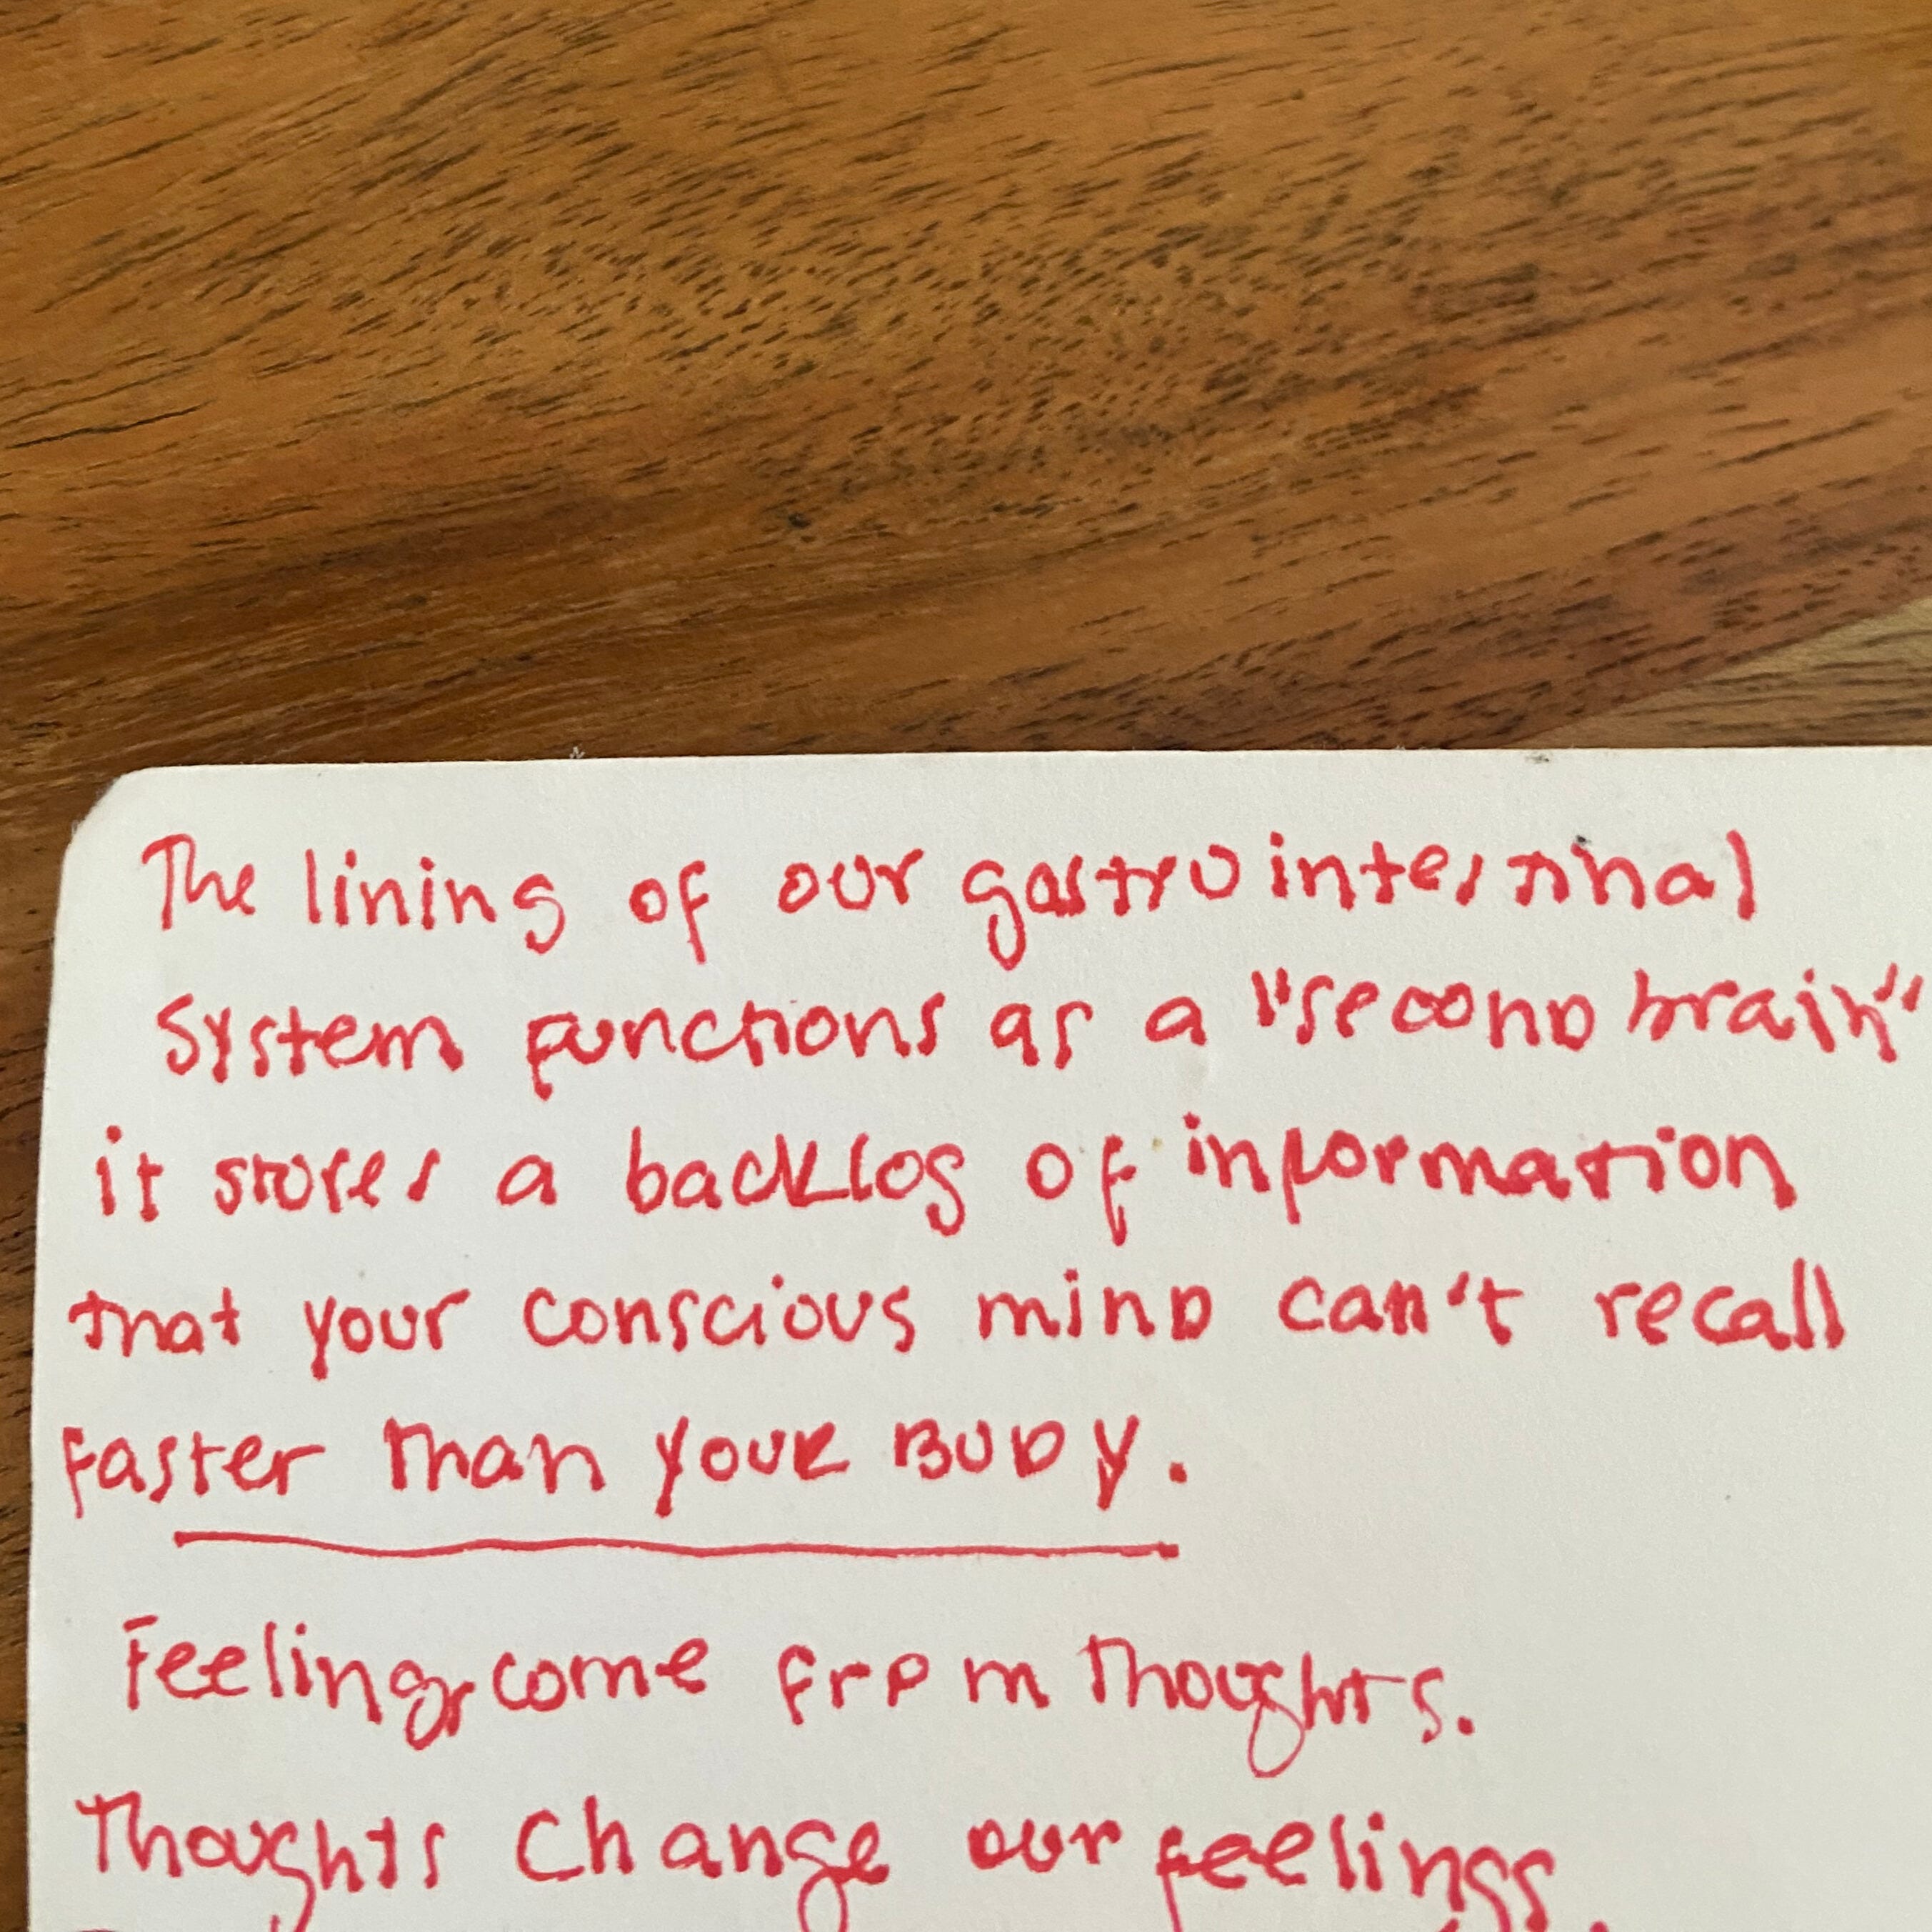 The lining of our gastro intestinal
System functions as a "second brain"
it stores a backlog of information
that your conscious mind can't recall
faster than YOUR BODY.
Feelings come from thoughts.
Thoughts Change our feelings.